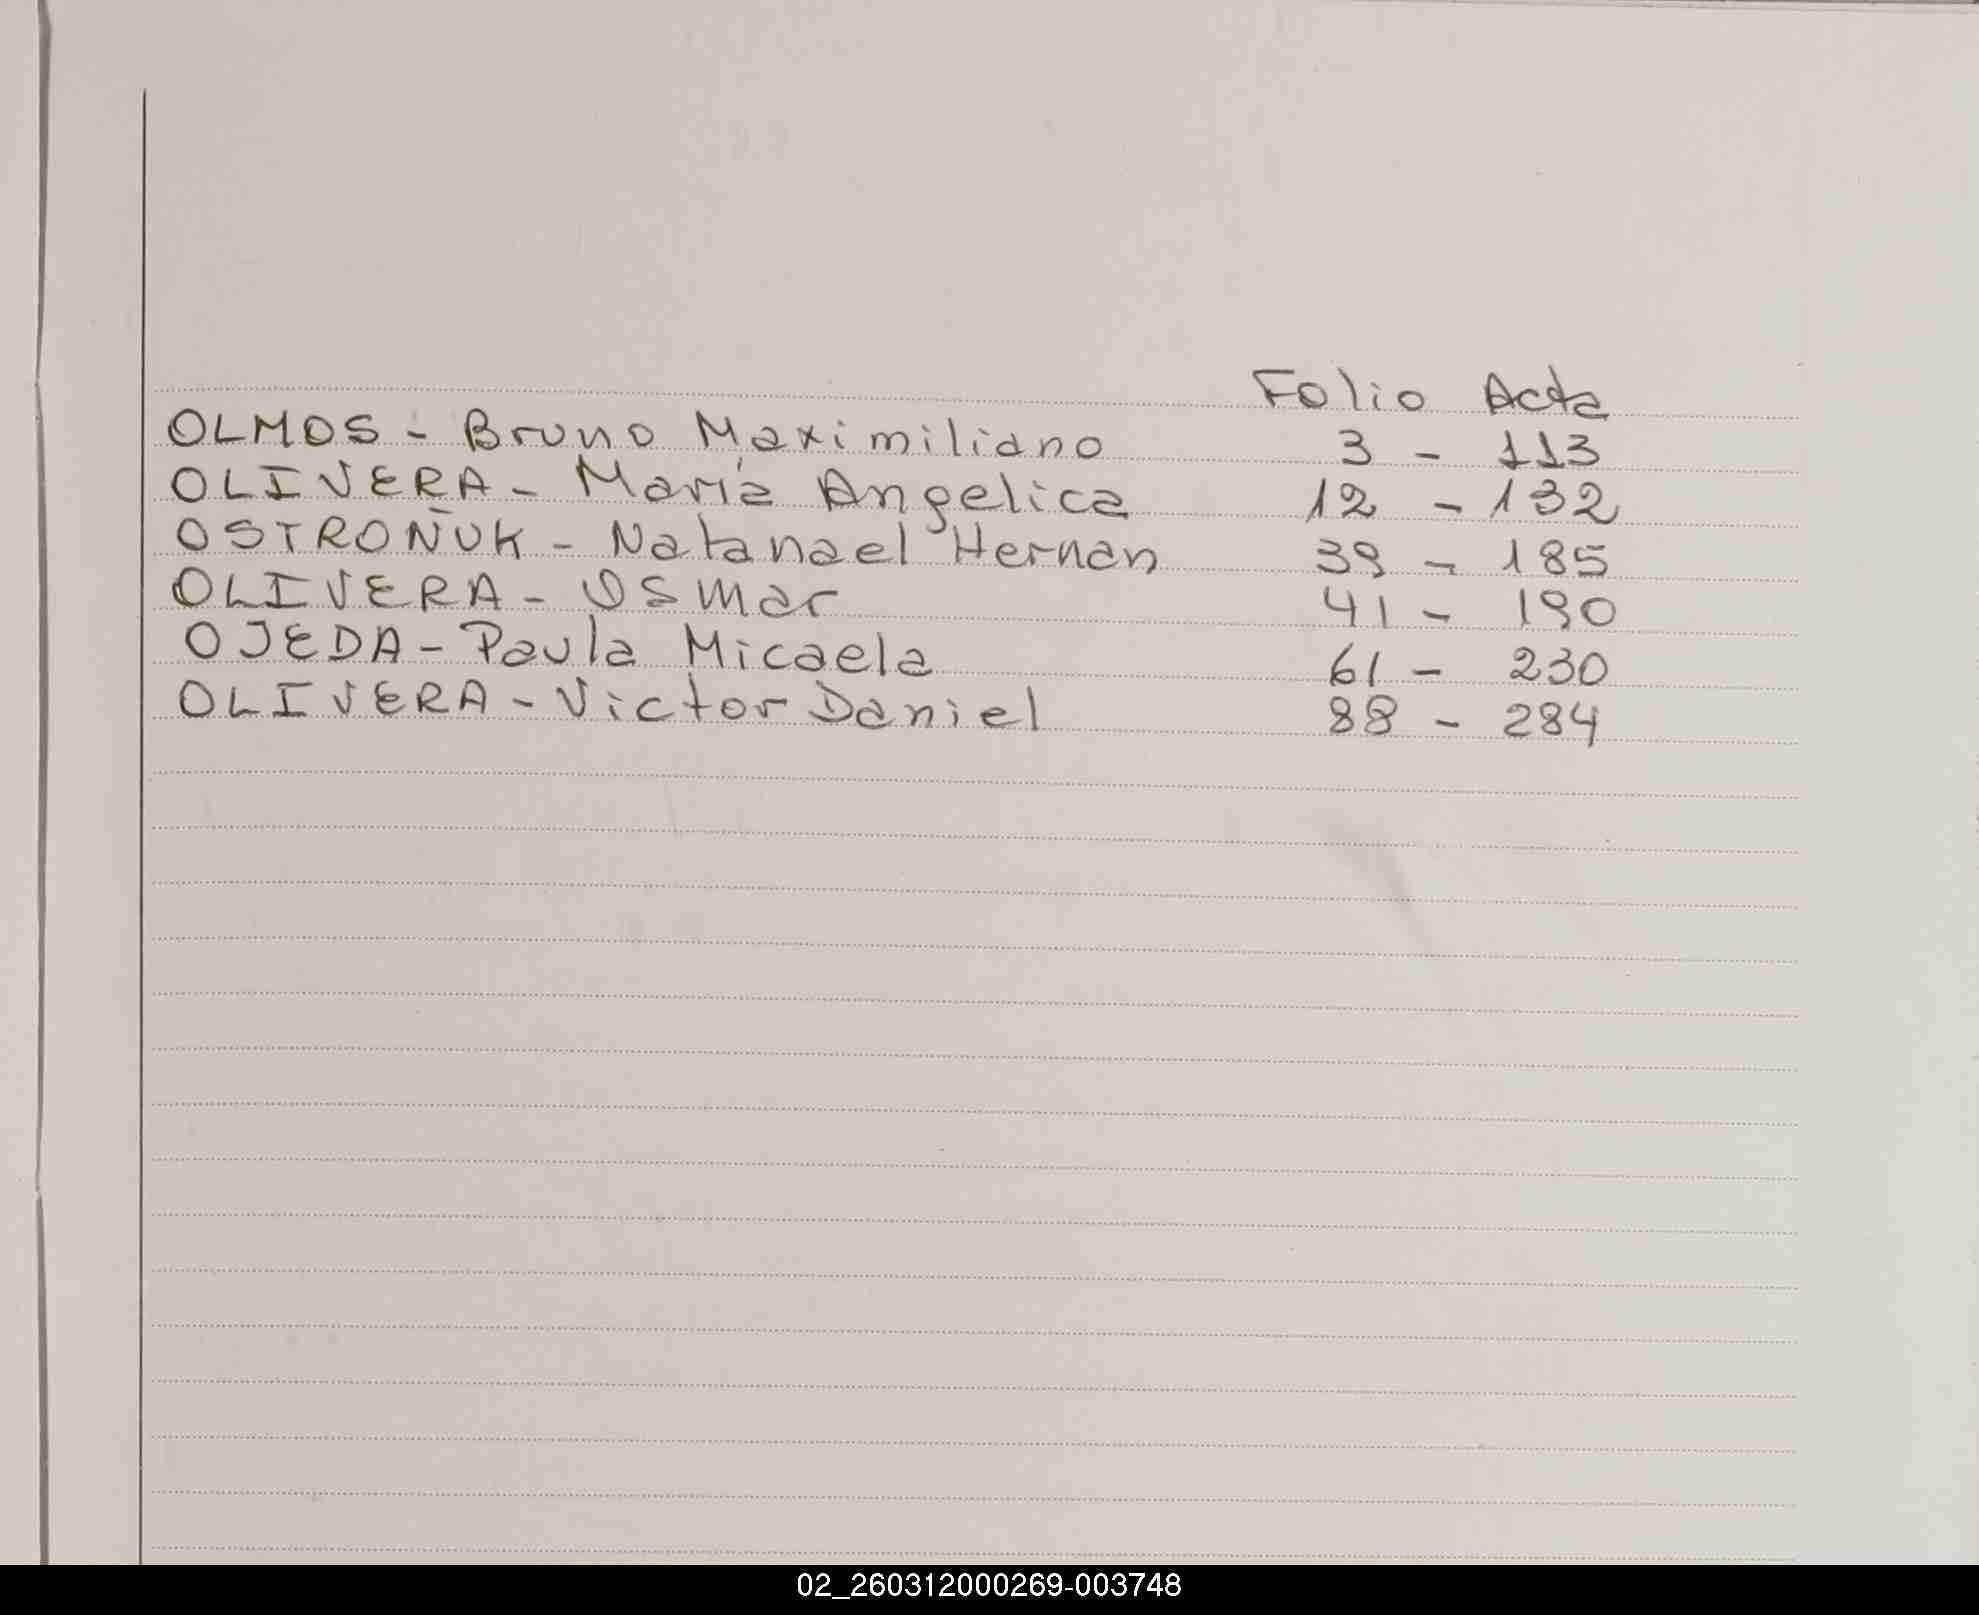 Folio Acta
OLMOS - Bruno Maximiliano 3 - 113
OLIVERA - María Angelica 12 - 132
OSTROÑUK - Natanael Hernan 39 - 185
OLIVERA - Osmar 41 - 190
OJEDA - Paula Micaela 61 - 230
OLIVERA - Victor Daniel 88 - 284
02_260312000269-003748